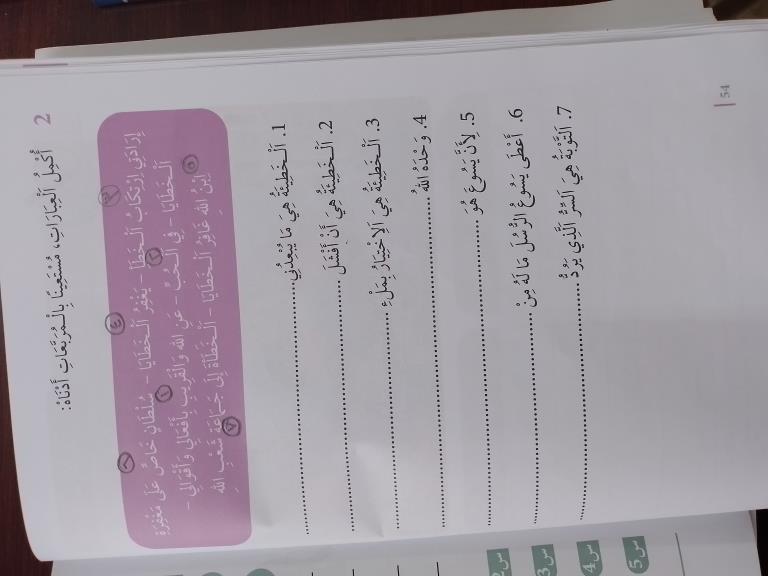 2 أَكْمِلُ الْعِبَارَاتِ، مُسْتَعِينًا بِالْمُرَبَّعَاتِ أَدْنَاهُ:
إِرَادَتِي اِرْتِكَابُ الْخَطَأِ - يَغْفِرُ الْخَطَايَا - سُلْطَانٍ خَاصٍّ عَلَى مَغْفِرَةِ
الْخَطَايَا - فِي الْحُبِّ - عَنِ اللهِ وَالْقَرِيبِ بِأَفْعَالِي وَأَقْوَالِي -
اِبْنُ اللهِ غَافِرُ الْخَطَايَا - الْخَطَأَةَ إِلَى جَمَاعَةِ شَعْبِ اللهِ
٣ ٤ ٦
٢ ١
٥ ٧
1. اَلْخَطِيئَةُ هِيَ مَا يُبْعِدُنِي
2. اَلْخَطِيئَةُ هِيَ أَنْ أَفْشَلَ
3. اَلْخَطِيئَةُ هِيَ الاِخْتِيَارُ بِمَلْءِ
4. وَحْدَهُ اللهُ
5. لِأَنَّ يَسُوعَ هُوَ
6. أَعْطَى يَسُوعُ الرُّسُلَ مَا لَهُ مِنْ
7. اَلتَّوْبَةُ هِيَ السِّرُّ الَّذِي يَرُدُّ
54
س2
س3
س4
س5